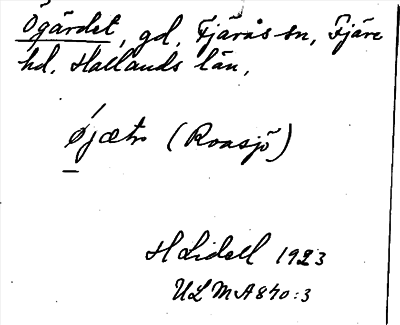 Ögärdet, gd, Fjärås sn, Fjäre
hd. Hallands län,
(Roasjö)
H Lidell 1923
ULMA 840:3